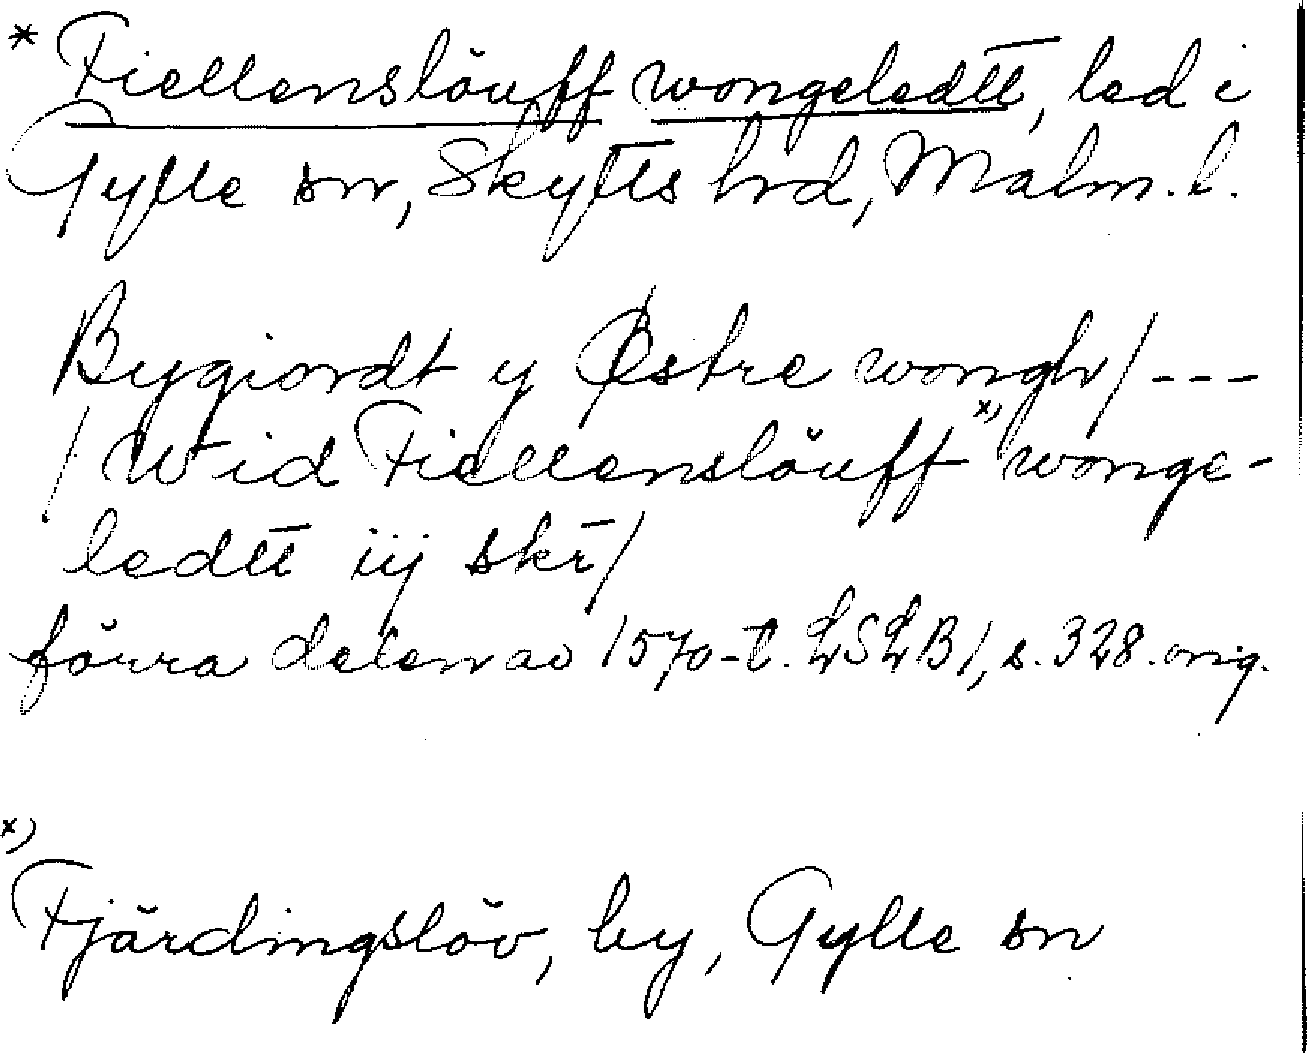 * Fiellenslöuff wongeledtt, led i
Gylle sn, Skytts hrd, Malm. l.
Bygiordt y Østre wongh/ ---
/ Wid Fiellenslöuff x) wonge-
ledtt iij skr/
förra delen av 1570-t. LSLB1, s. 328. orig.
x)
Fjärdingslöv, by, Gylle sn